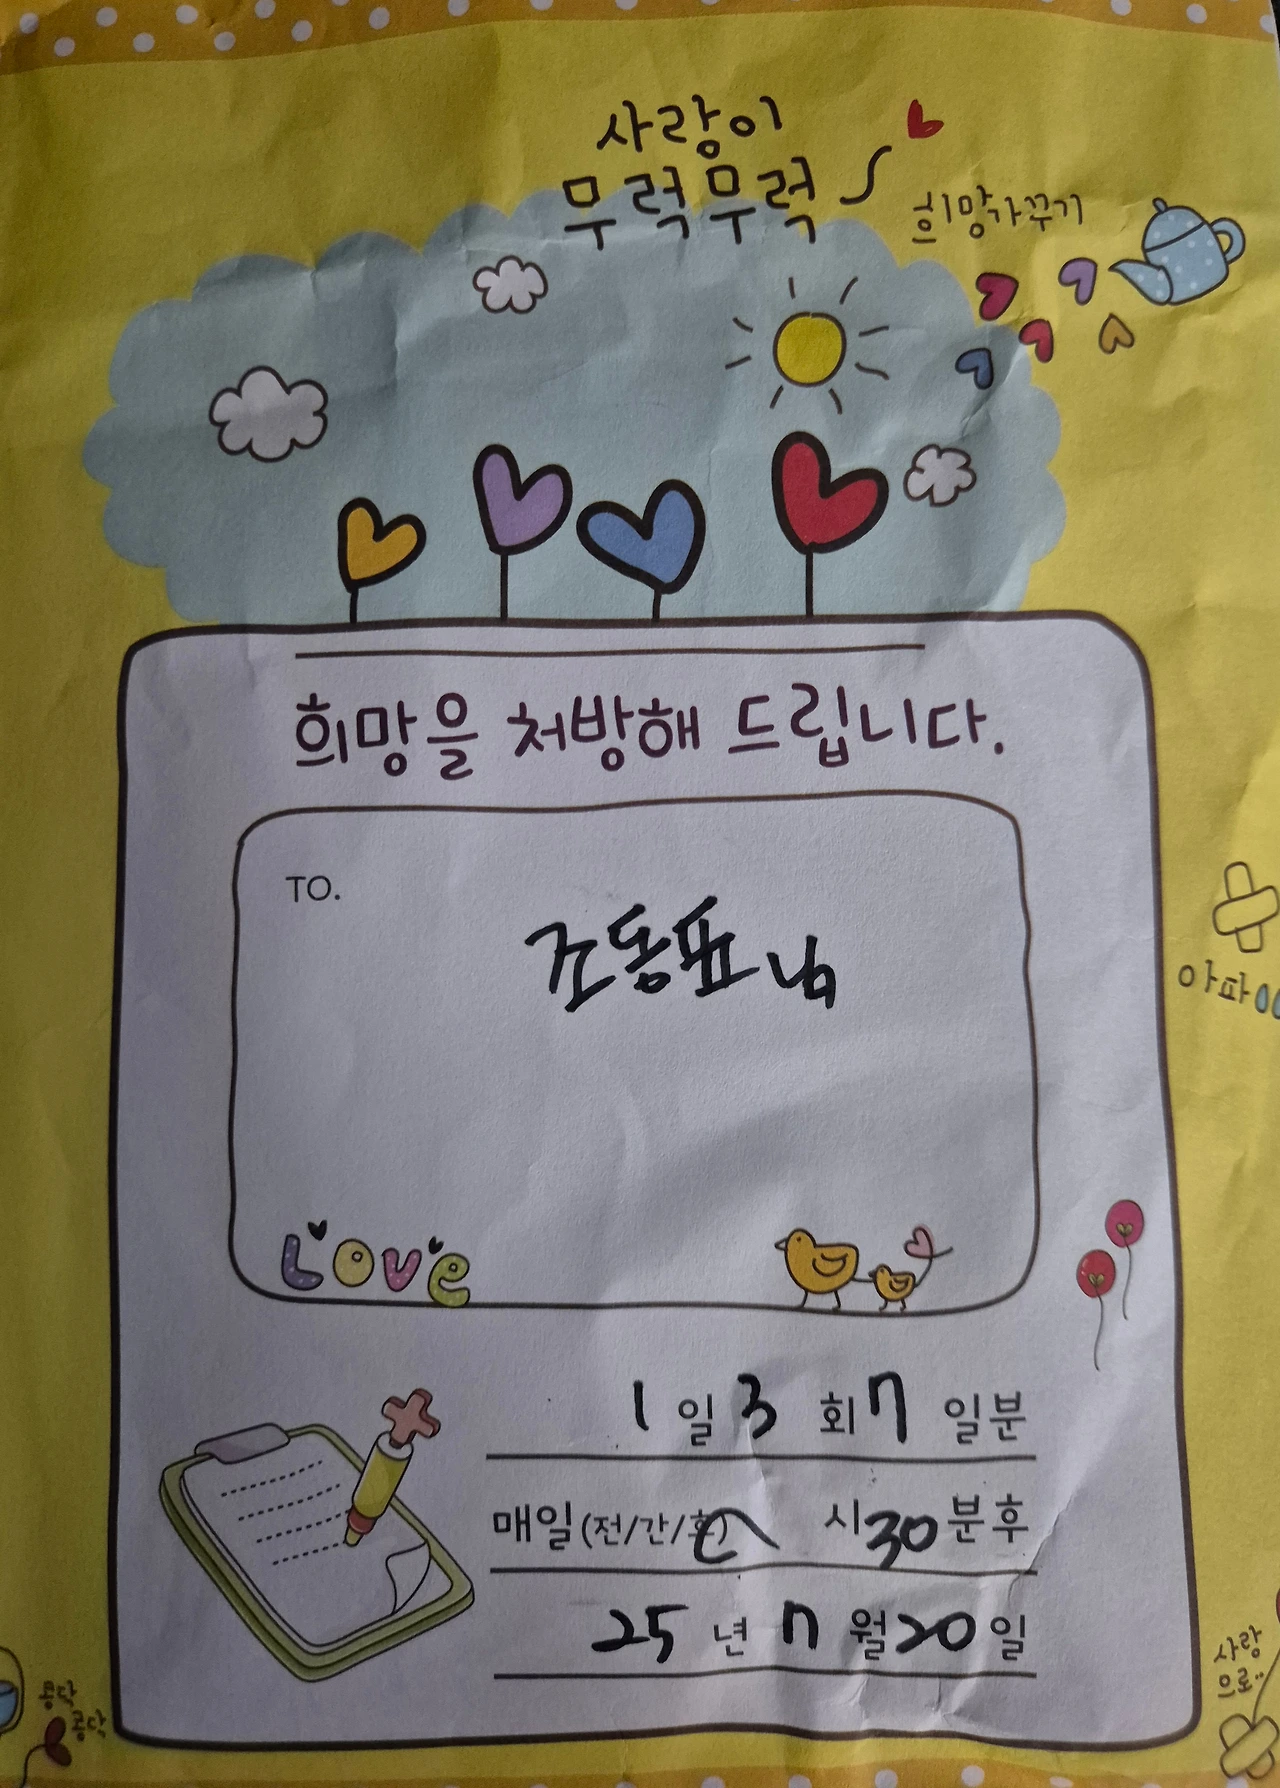 사랑이
무럭무럭
희망가꾸기
희망을 처방해 드립니다.
TO.
조동표님
아파
LOVE
1 일 3 회 7 일분
매일(전/간/후) 시 30 분후
25 년 7 월 20 일
사랑
으로..
콩닥
콩닥